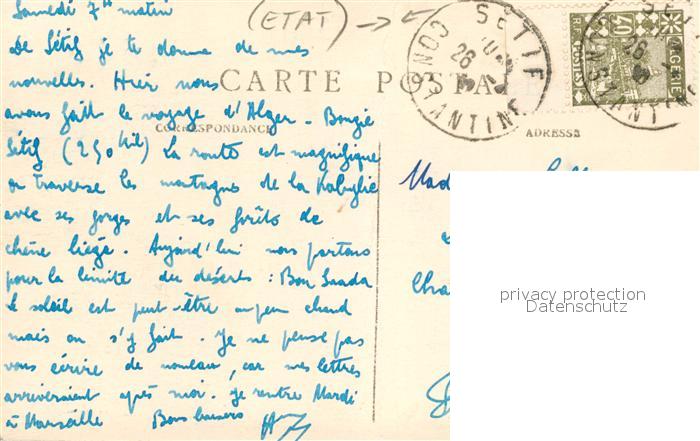 Samedi 7h matin
(ETAT)
De Sétif je te donne de mes
nouvelles. Hier nous
CARTE POSTA
avons fait le voyage d'Alger - Bougie
CORRESPONDANCE
ADRESSE
Sétif (250 Kil) La route est magnifique
on traverse les montagnes de la Kabylie
avec ses gorges et ses forêts de
chêne liège. Aujourd'hui nous partons
pour la limite du déserts : Bou Saada
le soleil est peut-être un peu chaud
mais on s'y fait. Je ne pense pas
vous écrire de nouveau, car mes lettres
arriveraient après moi. Je rentre Mardi
à Marseille Bons baisers
SETIF
CONSTANTINE
26
40
ALGERIE
POSTES
Mad
Cha
privacy protection
Datenschutz